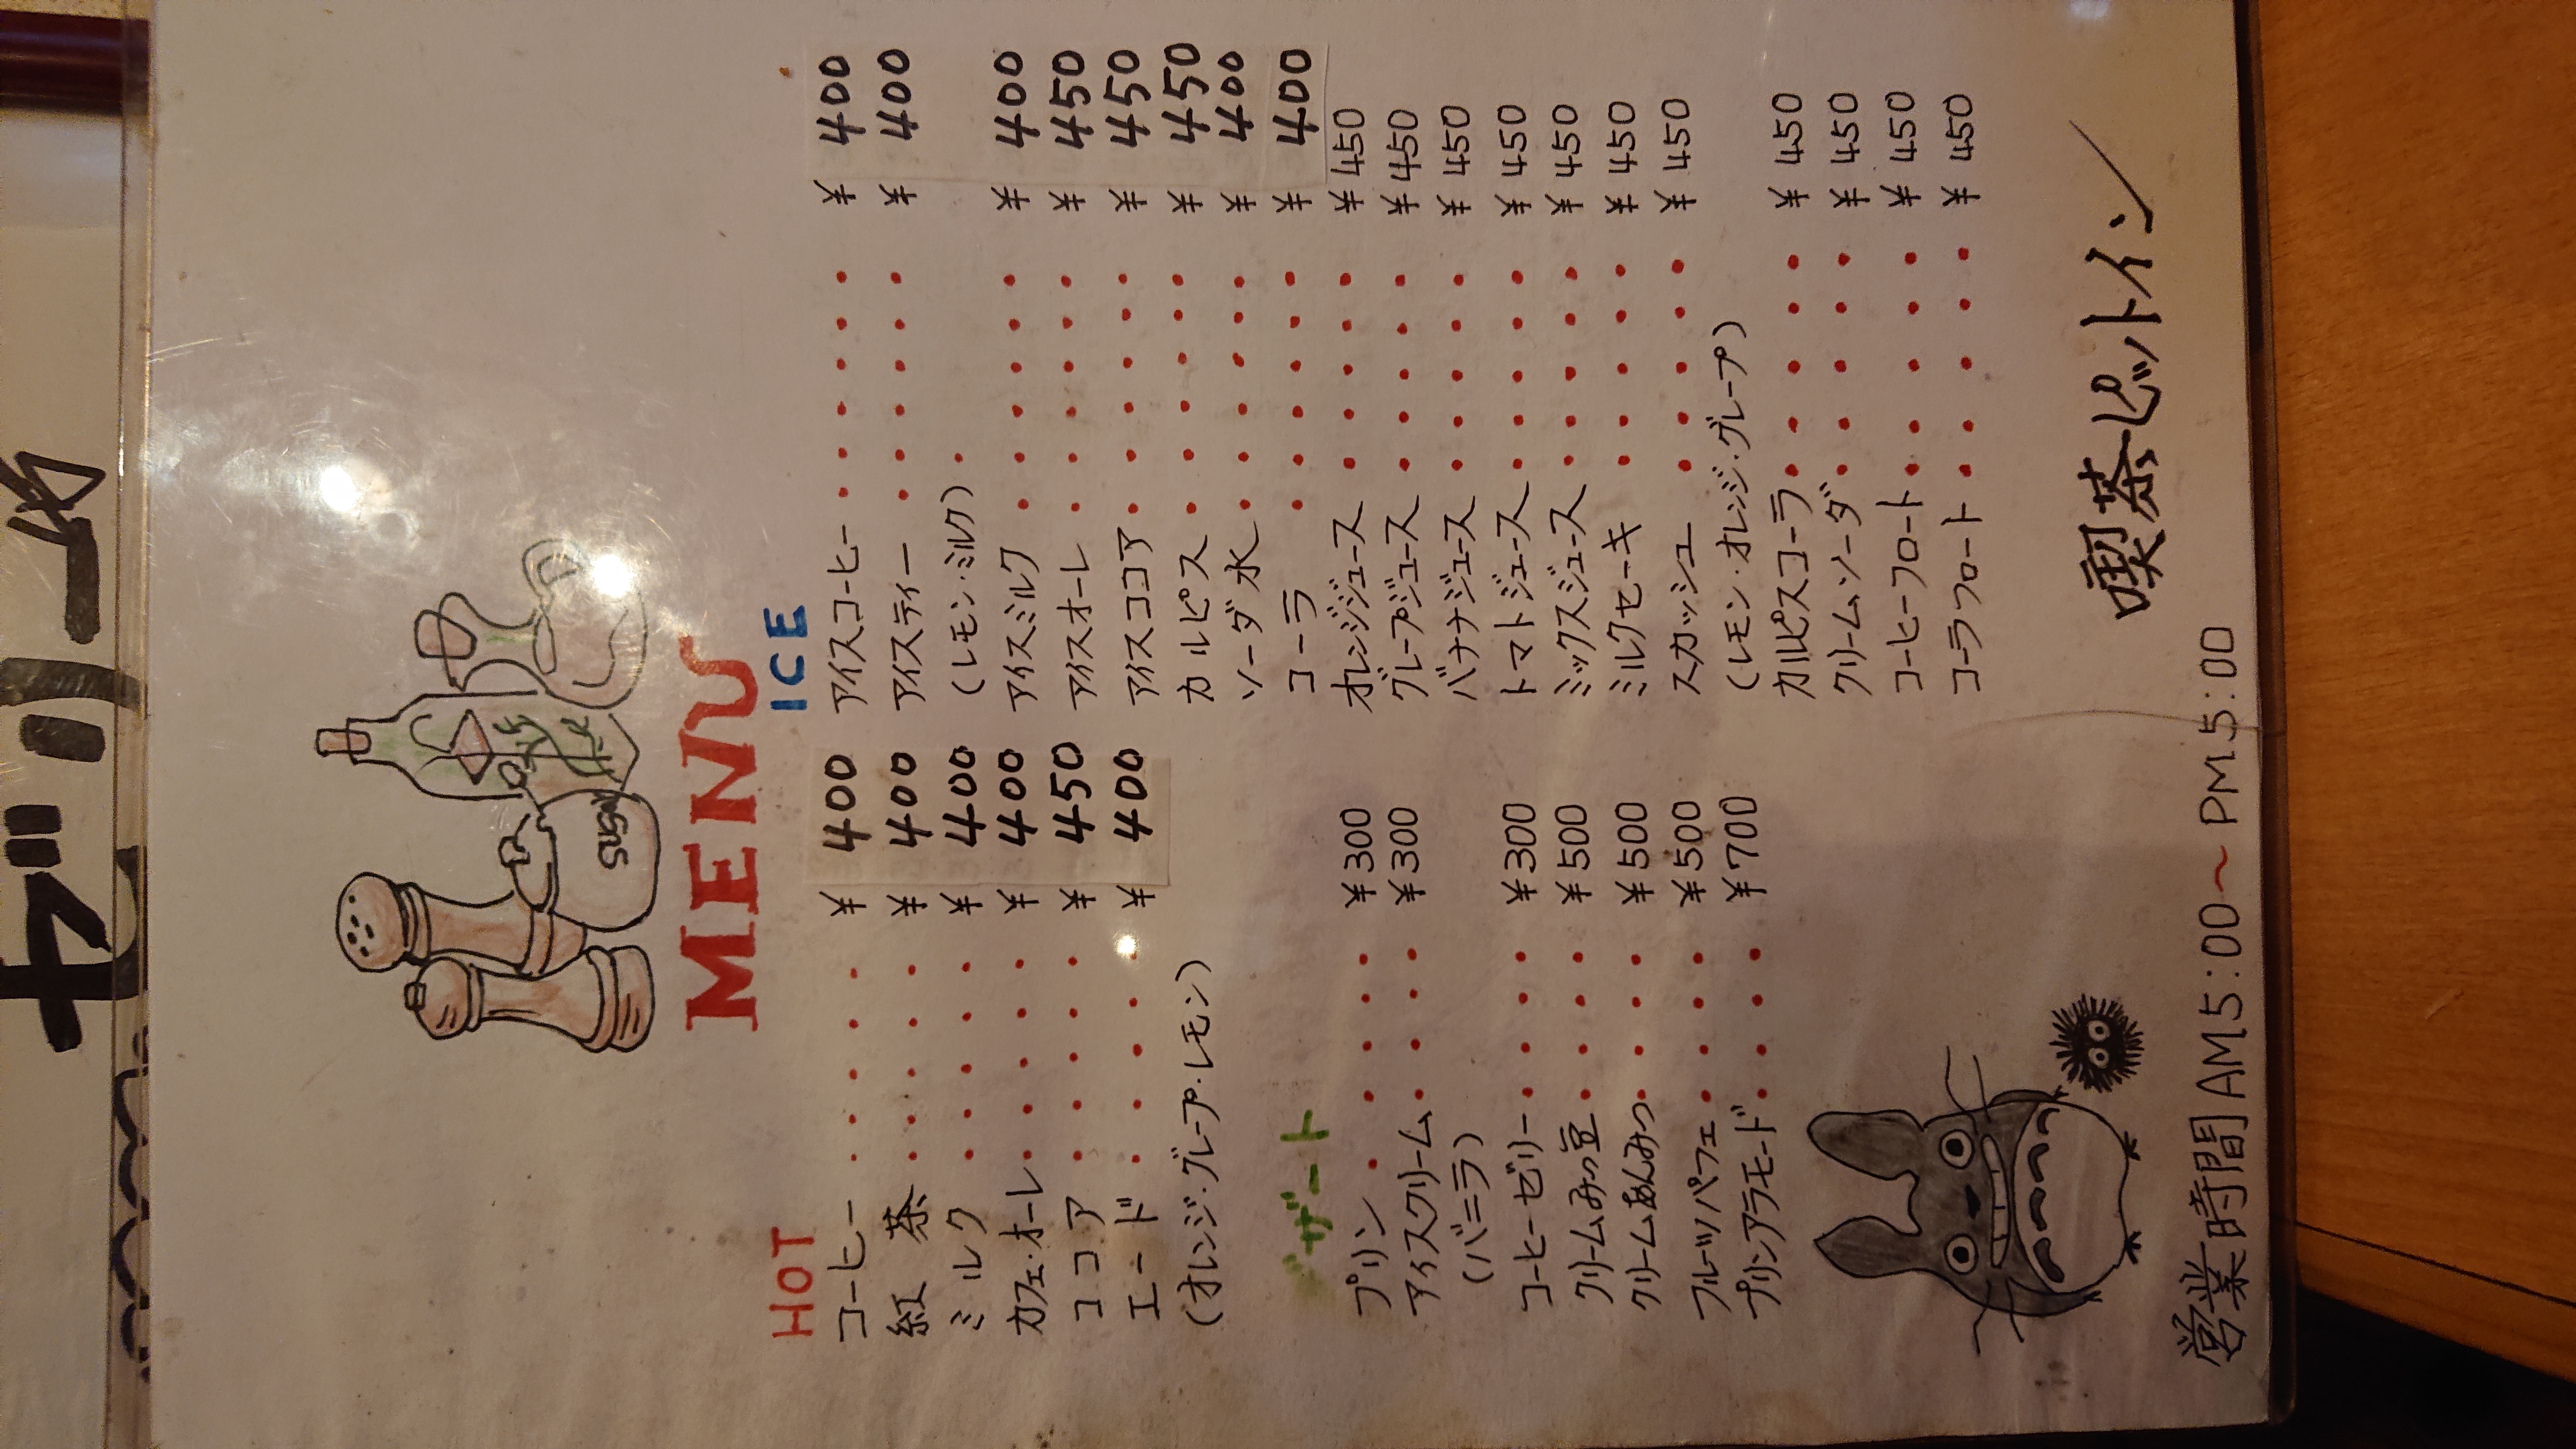 MENU
HOT
コーヒー ・・・・・ ¥400
紅 茶 ・・・・・ ¥400
ミルク ・・・・・ ¥400
カフェ・オーレ ・・・・・ ¥400
ココア ・・・・・ ¥450
エード ・・・・・ ¥400
(オレンジ・グレープ・レモン)
デザート
プリン ・・・・・ ¥300
アイスクリーム ・・・・ ¥300
(バニラ)
コーヒーゼリー ・・・・ ¥300
クリームみつ豆 ・・・・ ¥500
クリームあんみつ ・・・・ ¥500
フルーツパフェ ・・・・ ¥500
プリンアラモード ・・・・ ¥700
ICE
アイスコーヒー ・・・・・・ ¥400
アイスティー ・・・・・・ ¥400
(レモン・ミルク) ・
アイスミルク ・・・・・・ ¥400
アイスオーレ ・・・・・・ ¥450
アイスココア ・・・・・・ ¥450
カルピス ・・・・・・ ¥450
ソーダ水 ・・・・・・ ¥400
コーラ ・・・・・・ ¥400
オレンジジュース ・・・・・ ¥450
グレープジュース ・・・・・ ¥450
バナナジュース ・・・・・ ¥450
トマトジュース ・・・・・ ¥450
ミックスジュース ・・・・・ ¥450
ミルクセーキ ・・・・・ ¥450
スカッシュ ・・・・・ ¥450
(レモン・オレンジ・グレープ)
カルピスコーラ ・・・・・ ¥450
クリームソーダ ・・・・・ ¥450
コーヒーフロート ・・・・・ ¥450
コーラフロート ・・・・・ ¥450
喫茶ピットイン
営業時間AM5:00〜PM5:00